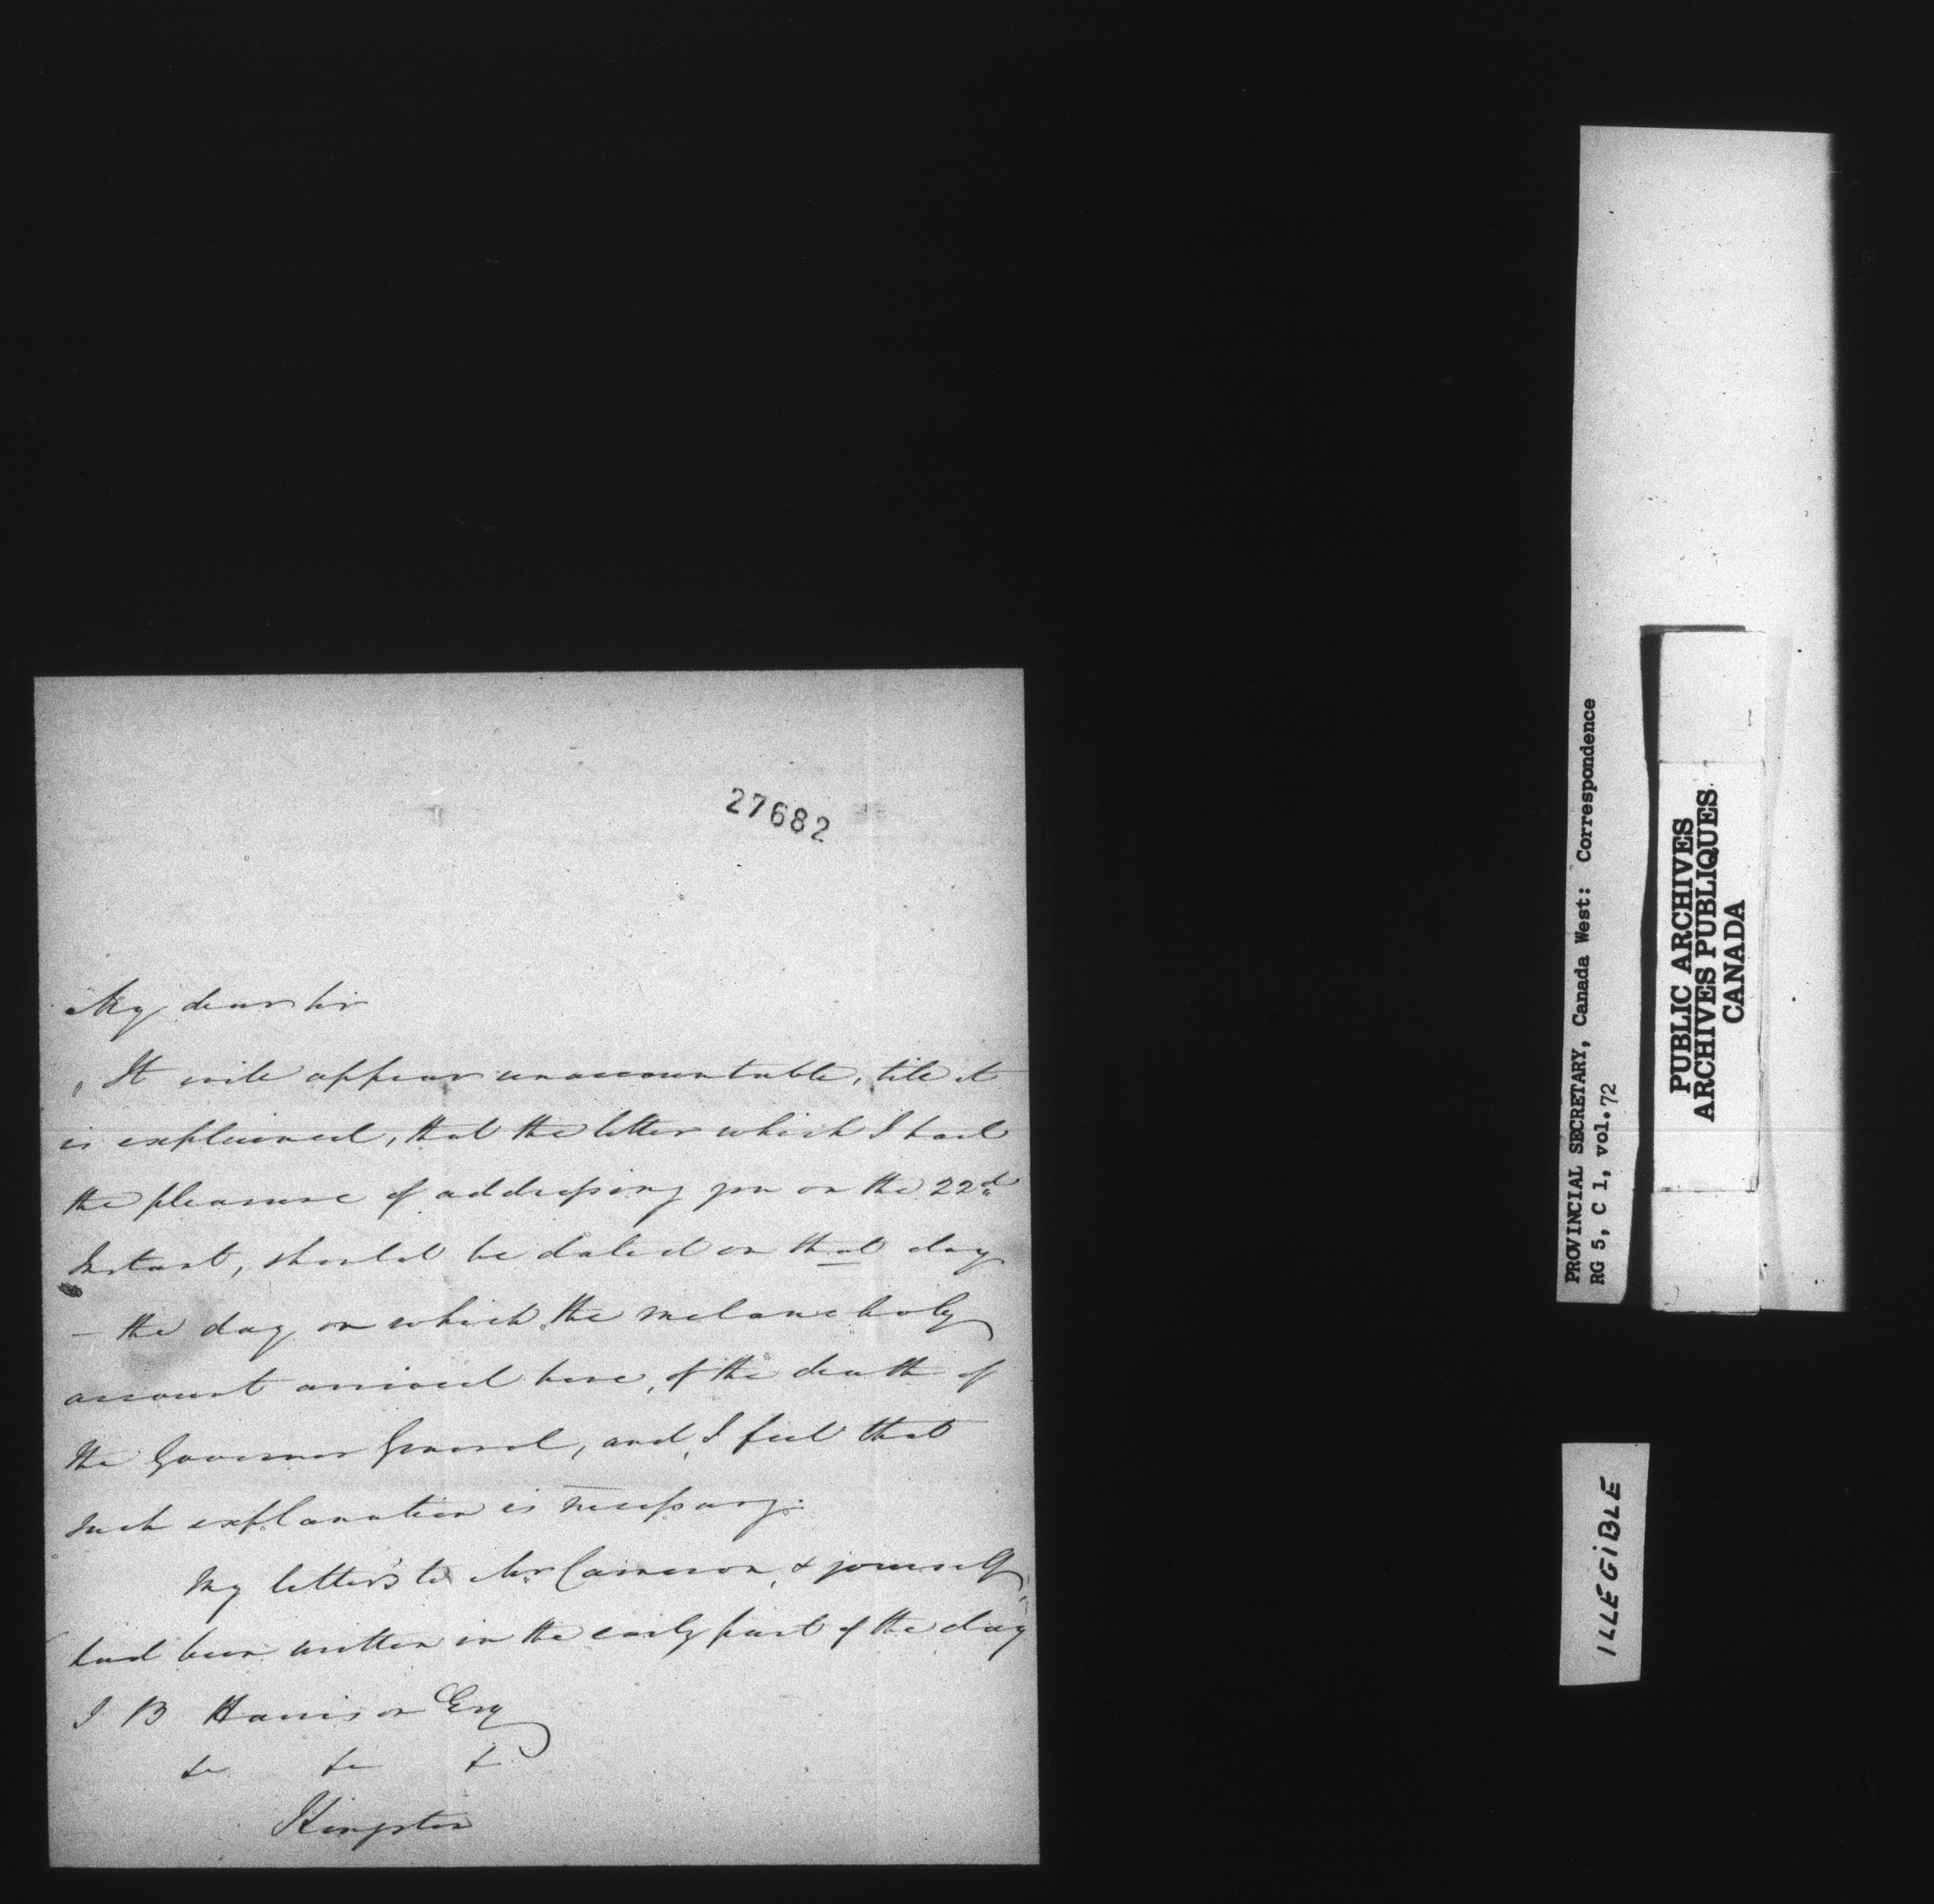 27682
My dear Sir
It will appear unaccountable, till it
is explained, that the letter which I had
the pleasure of addressing you on the 22d
Instant, should be dated on that day
– the day on which the melancholy
account arrived here, of the death of
the Governor General, and I feel that
such explanation is necessary.
My letters to Mr Cameron, & yourself,
had been written in the early part of the day
S B Harrison Esq
&c &c &c
Kingston
PROVINCIAL SECRETARY, Canada West: Correspondence
RG 5, C 1, vol. 72
PUBLIC ARCHIVES
ARCHIVES PUBLIQUES
CANADA
ILLEGIBLE